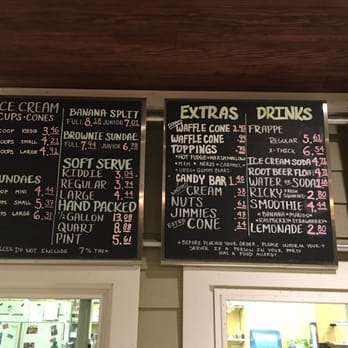 ICE CREAM
CUPS · CONES
SCOOP KIDDIE 3.46
SCOOP SMALL 4.21
SCOOPS LARGE 4.91
SUNDAES
SCOOP MINI 4.44
SCOOPS SMALL 5.37
SCOOPS LARGE 6.31
BANANA SPLIT
FULL 8.18 JUNIOR 7.01
BROWNIE SUNDAE
FULL 7.94 JUNIOR 6.78
SOFT SERVE
KIDDIE 3.04
REGULAR 3.74
LARGE 4.44
HAND PACKED
1/2 GALLON 13.08
QUART 8.88
PINT 5.61
DO NOT INCLUDE 7% TAX
EXTRAS
WAFFLE CONE
WAFFLE CONE
TOPPINGS
HOT FUDGE · MARSHMALLOW
M+M · NERDS · CARAMEL
OREO · GUMMI BEARS
CANDY BAR 1.40
CREAM
NUTS
JIMMIES
EXTRA CONE
DRINKS
FRAPPE
REGULAR 5.61
X-THICK 6.54
ICE CREAM SODA
ROOT BEER FLOAT
WATER OR SODA
RICKY 2.80
SMOOTHIE 4.44
BANANA · MANGO
RASPBERRY · STRAWBERRY
LEMONADE 2.80
* BEFORE PLACING YOUR ORDER, PLEASE INFORM YOUR
SERVER IF A PERSON IN YOUR PARTY
HAS A FOOD ALLERGY.